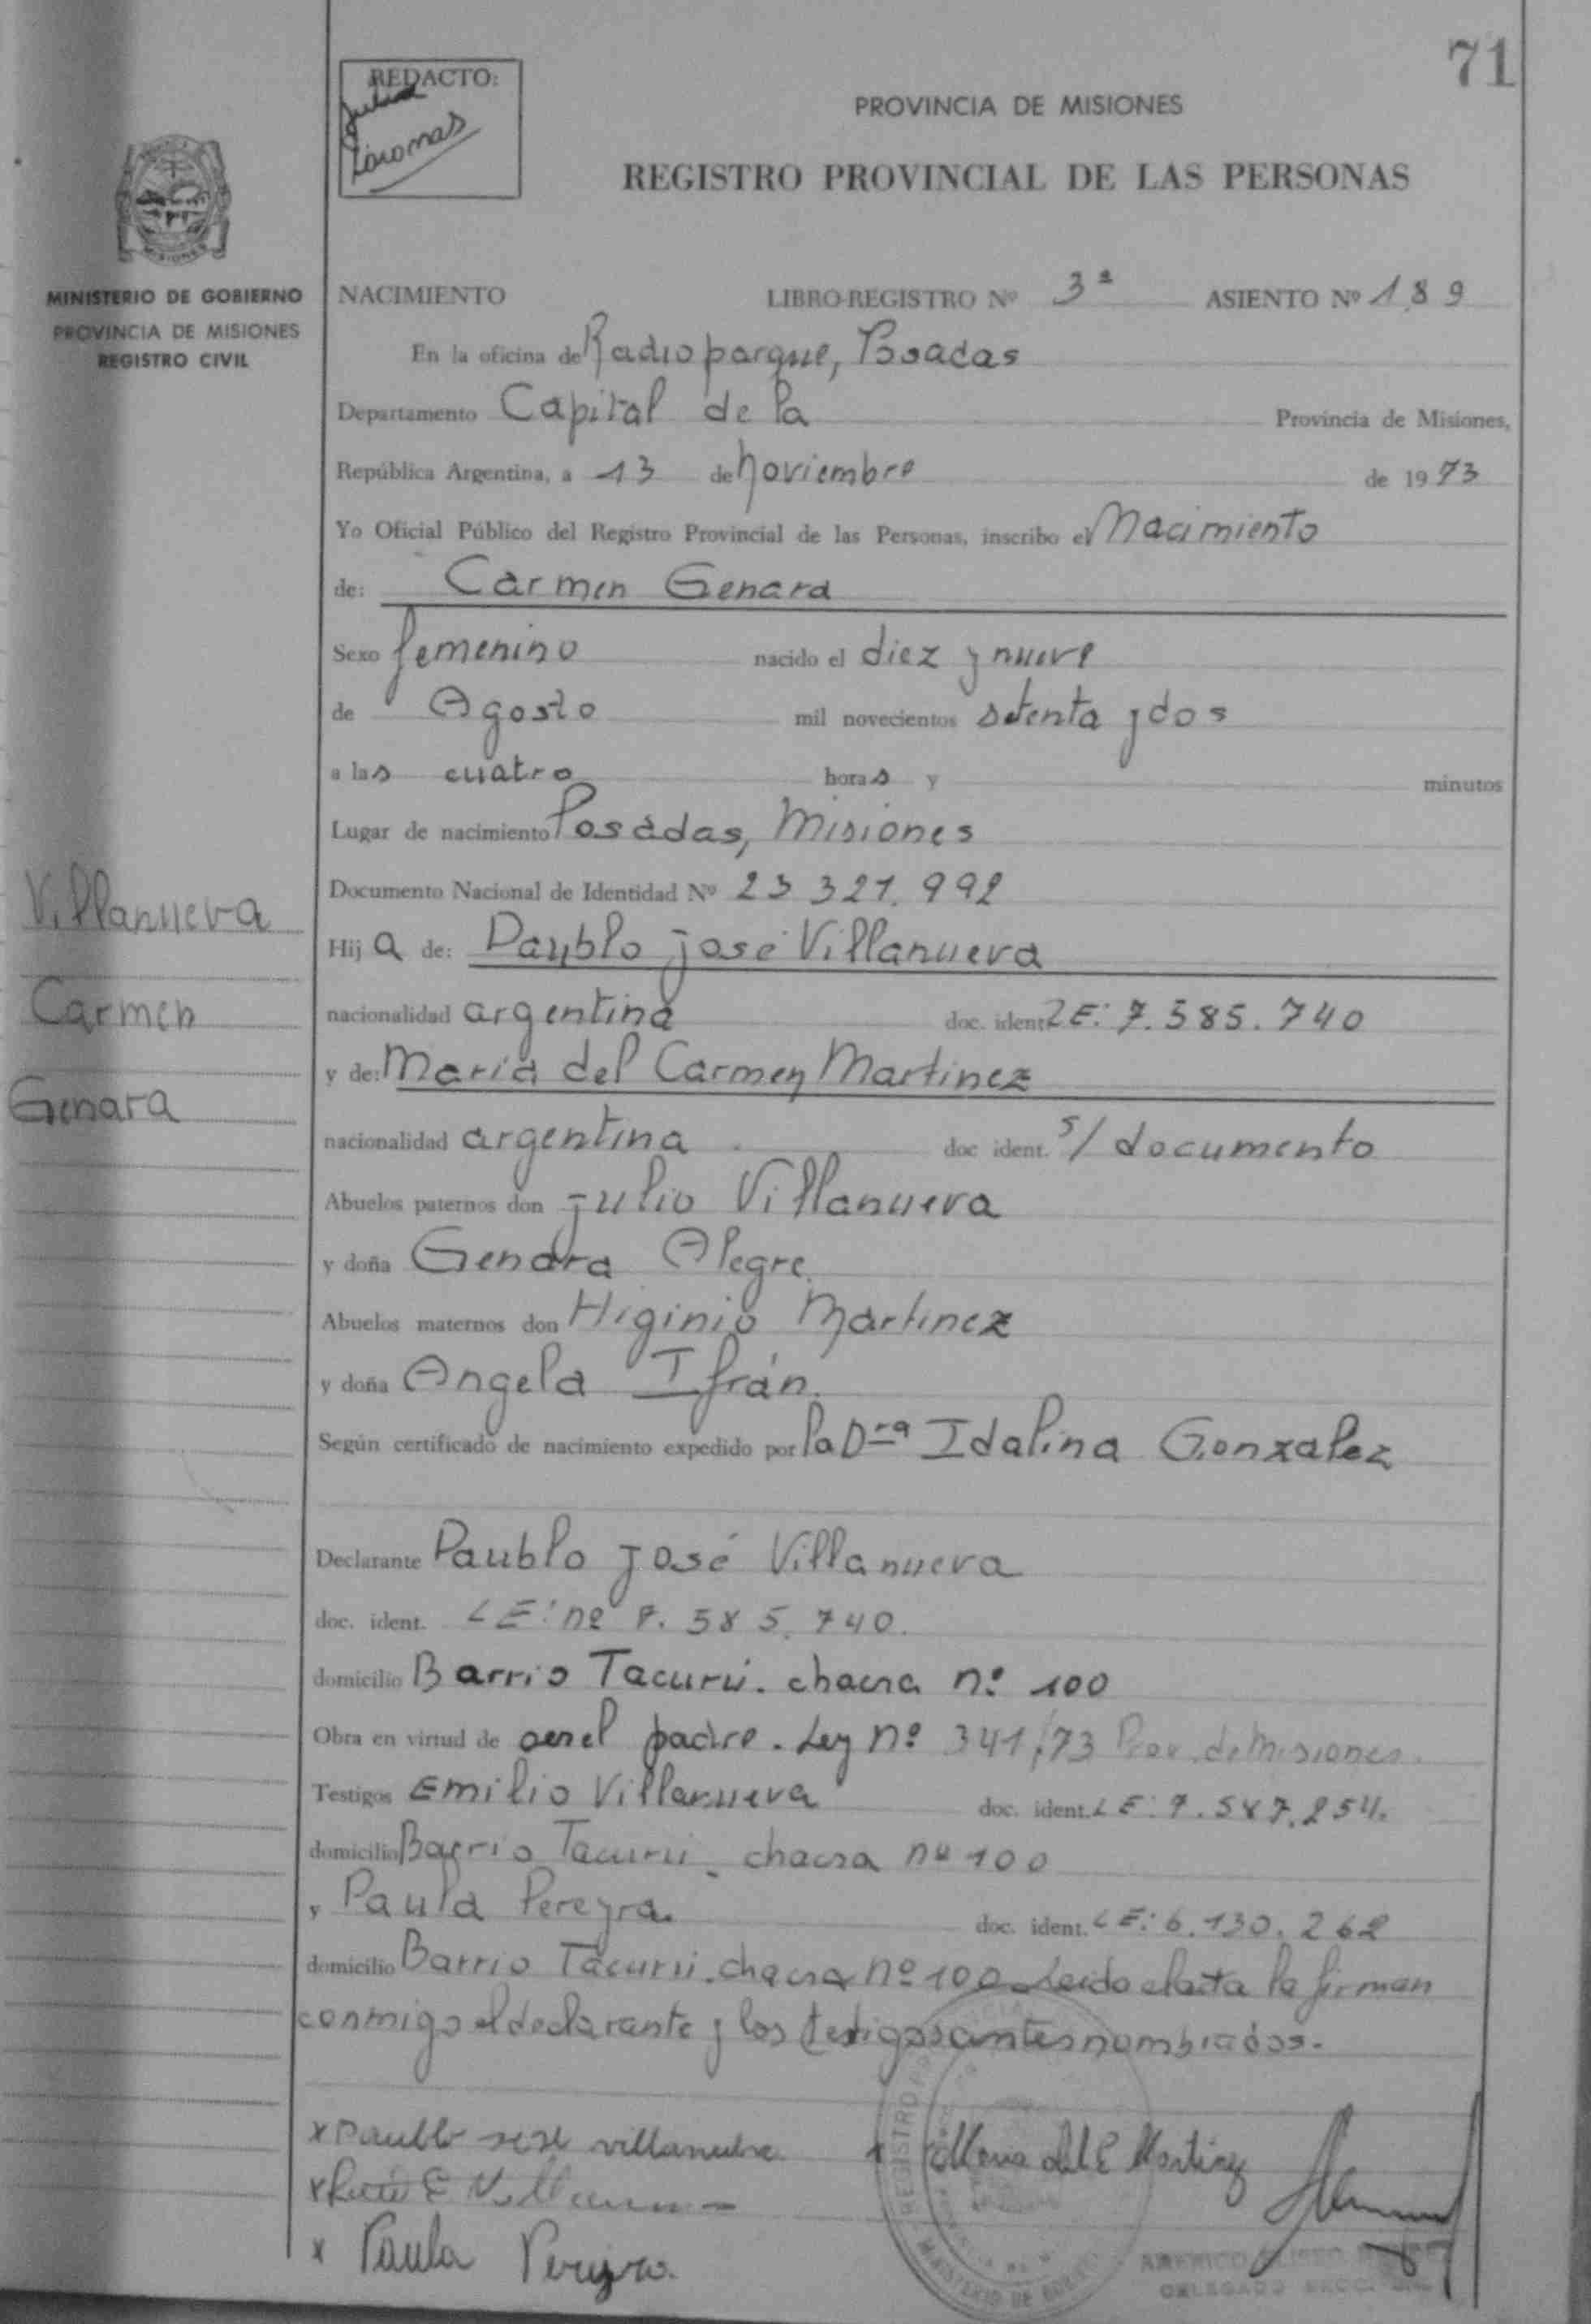 71
REDACTO:
PROVINCIA DE MISIONES
REGISTRO PROVINCIAL DE LAS PERSONAS
MISIONES
MINISTERIO DE GOBIERNO
PROVINCIA DE MISIONES
REGISTRO CIVIL
NACIMIENTO LIBRO-REGISTRO Nº 3ª ASIENTO Nº 189
En la oficina de Radioparque, Posadas
Departamento Capital de la Provincia de Misiones,
República Argentina, a 13 de noviembre de 1973
Yo Oficial Público del Registro Provincial de las Personas, inscribo el Nacimiento
de: Carmen Genara
Sexo femenino nacido el diez y nueve
de Agosto mil novecientos setenta y dos
a las cuatro horas y minutos
Lugar de nacimiento Posadas, Misiones
Documento Nacional de Identidad Nº 23 321.992
Villanueva
Carmen
Genara
Hija de: Paublo josé Villanueva
nacionalidad argentina doc. ident. LE: 7.585.740
y de: Maria del Carmen Martinez
nacionalidad argentina doc ident. s/ documento
Abuelos paternos don julio Villanueva
y doña Genara Alegre.
Abuelos maternos don Higinio Martinez
y doña Angela Ifrán.
Según certificado de nacimiento expedido por la Dra Idalina Gonzalez
Declarante Paublo josé Villanueva
doc. ident. LE: nº 7.585.740.
domicilio Barrio Tacurú. chacra nº 100
Obra en virtud de ser el padre. Ley nº 341/73 Prov. de Misiones.
Testigos Emilio Villanueva doc. ident. LE: 7.587.254.
domicilio Barrio Tacurú. chacra nº 100
y Paula Pereyra. doc. ident. LE: 6.130.262
domicilio Barrio Tacurú. chacra nº 100 Leido el acta la firman
conmigo el declarante y los testigos antes nombrados.
x Paublo jose villanueva x Maria del C Martinez
x Villanueva
x Paula Pereyra.
REGISTRO
MINISTERIO DE GOBIERNO
AMERICO
DELEGADO SECC.